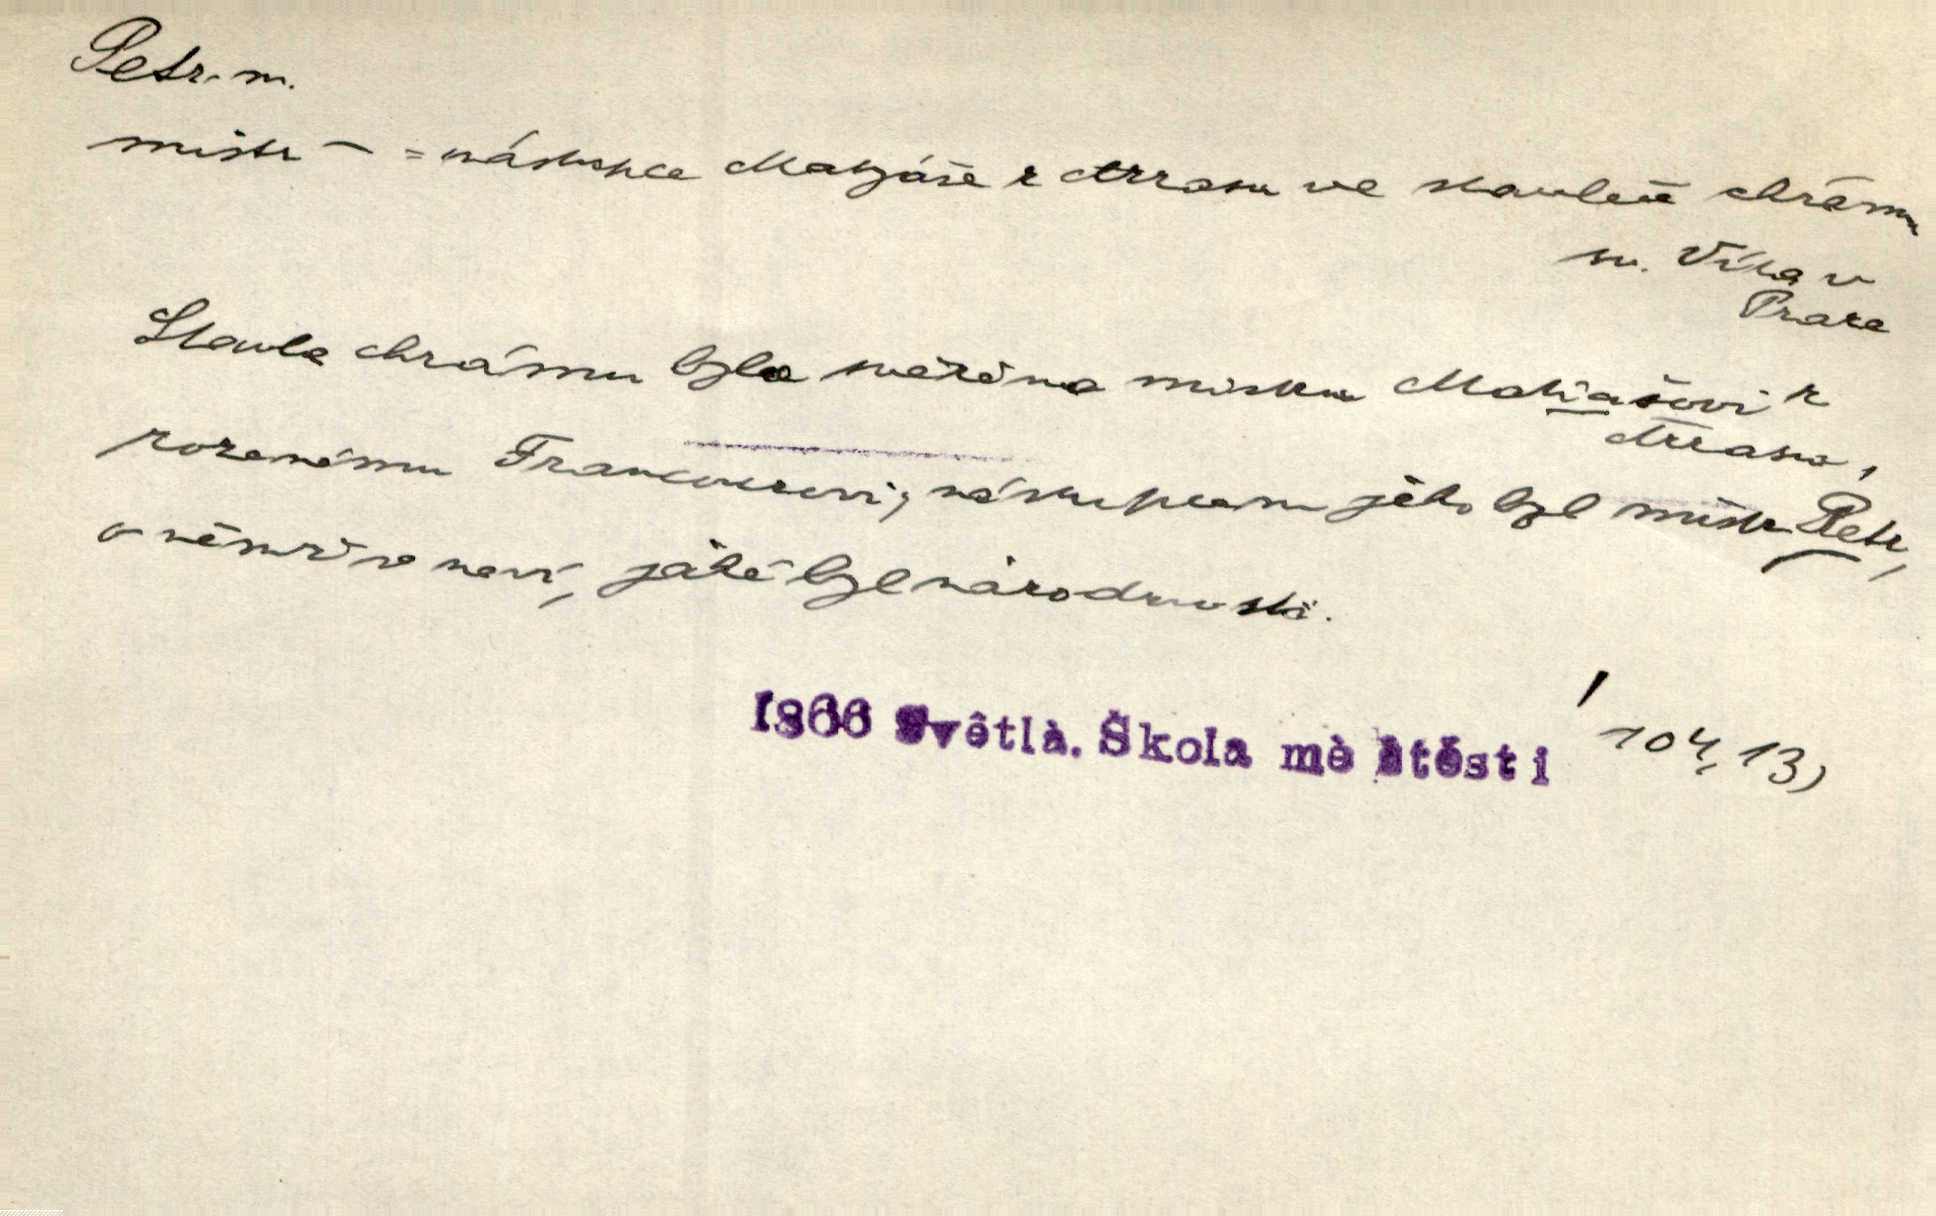 Petr. m.
mistr – = nástupce Matyáše z Arrasu ve stavbě chrámu
sv. Víta v
Praze
Stavba chrámu byla svěřena mistru Matiašovi z
Arrasu,
rozenému Francouzovi; nástupcem jeho byl mistr Petr,
o němž se neví, jaké byl národnosti.
1866 Světlà. Škola mè štěsti 104, 13)